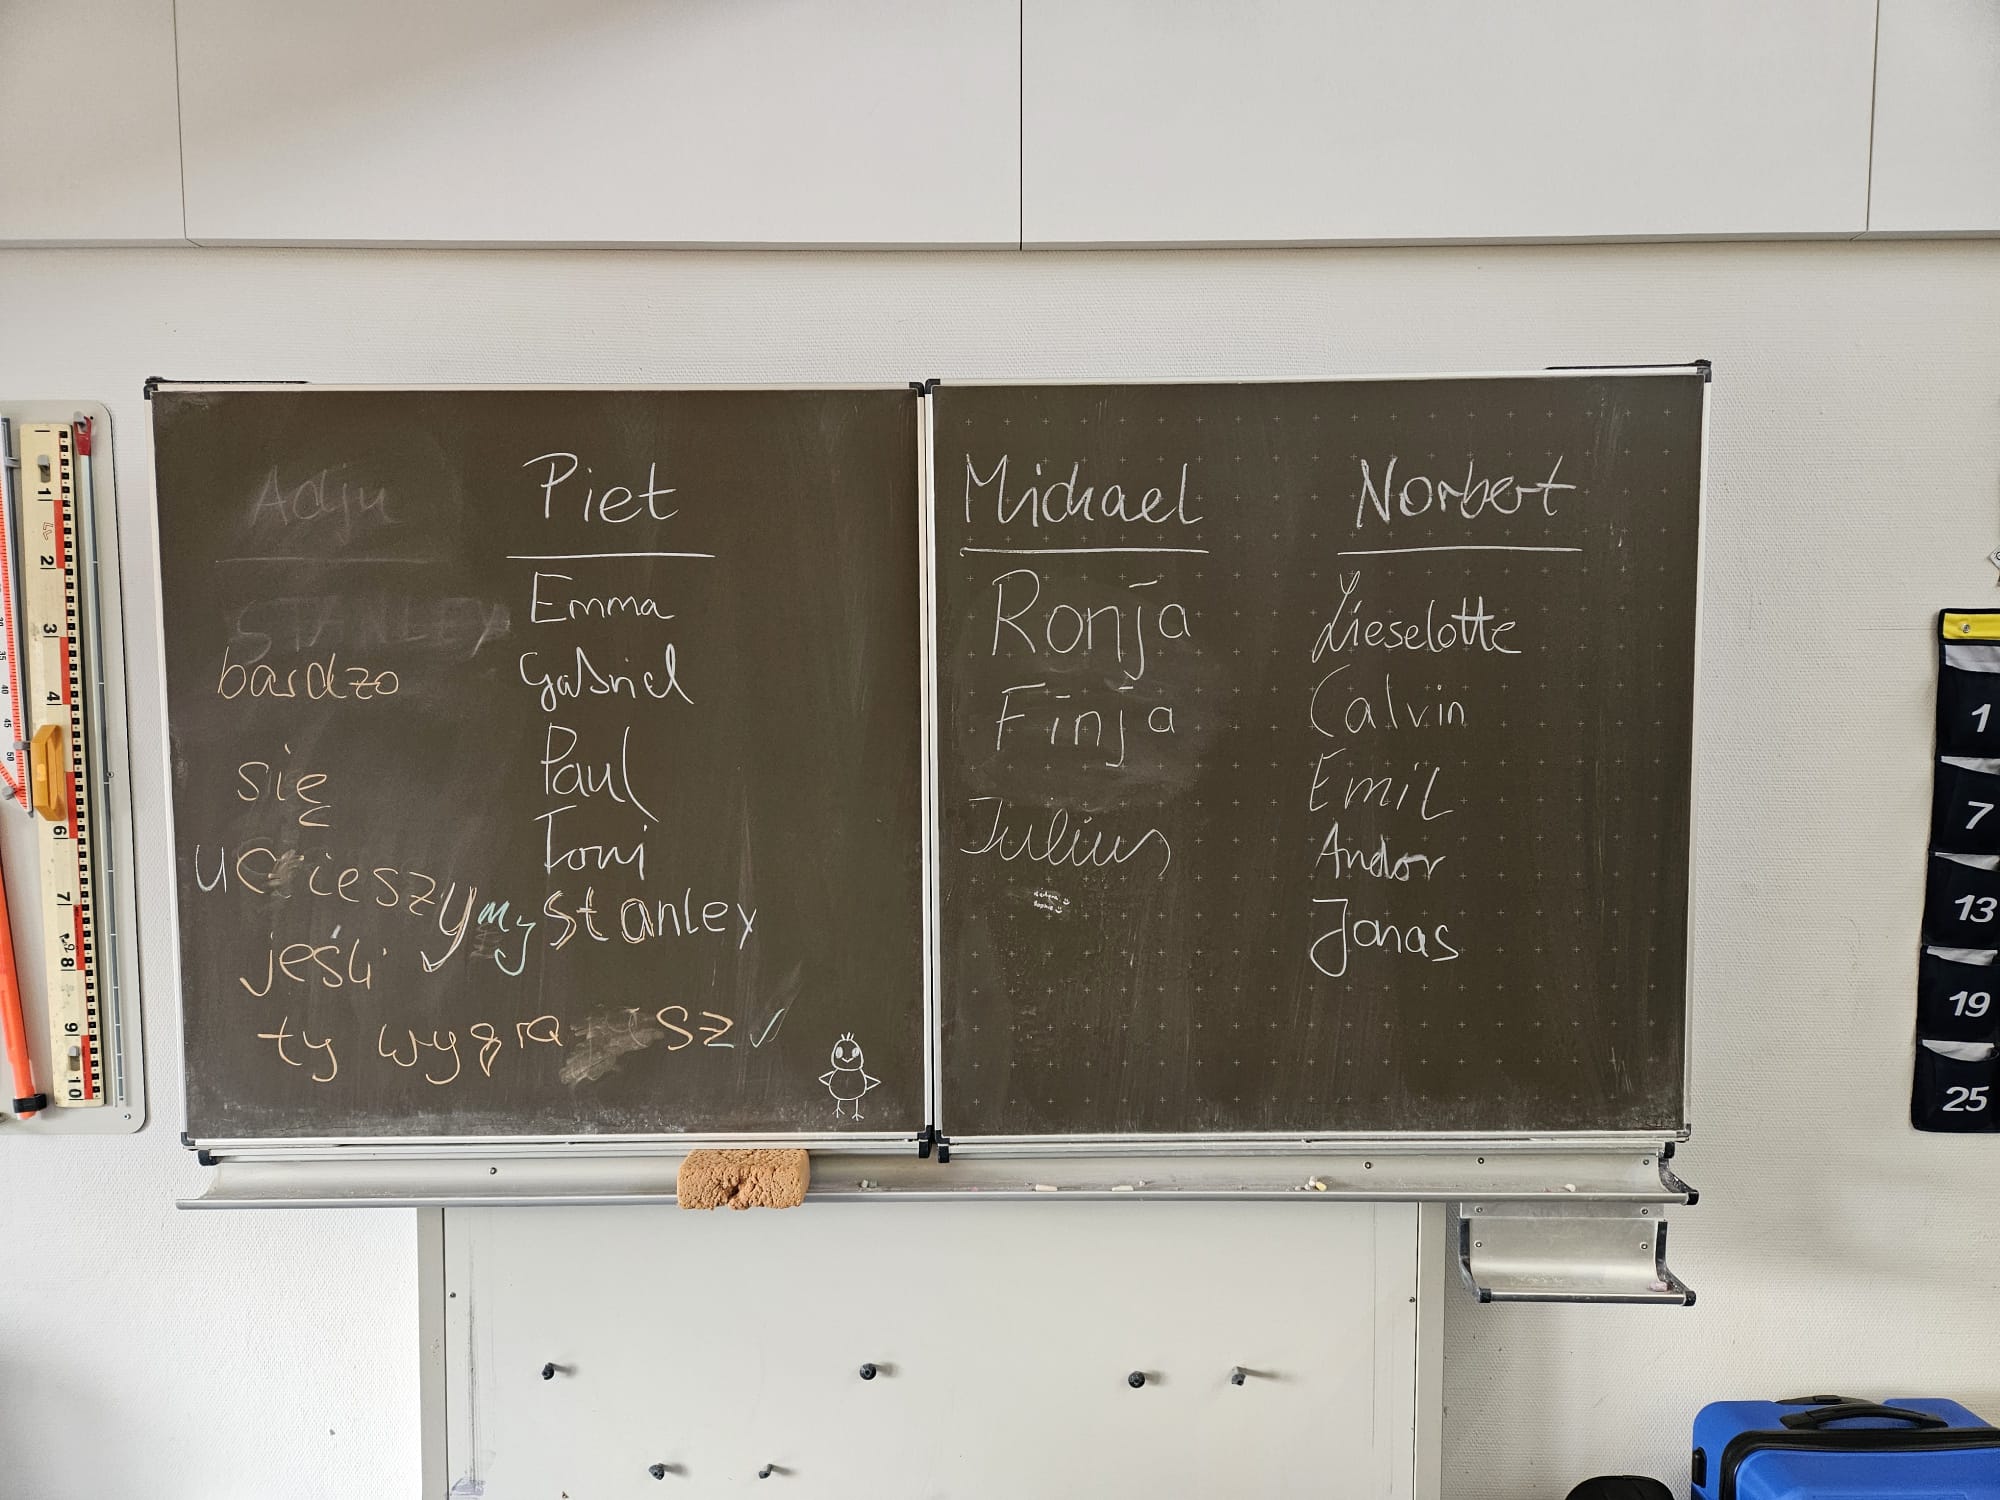 Adju
STANLEY
bardzo
się
ucieszymy
jeśli
ty wygrasz
Piet
Emma
Gabriel
Paul
Toni
Stanley
Michael
Ronja
Finja
Julius
Norbert
Lieselotte
Calvin
Emil
Andor
Jonas
1
2
3
4
6
7
8
9
10
35
40
45
50
1
7
13
19
25